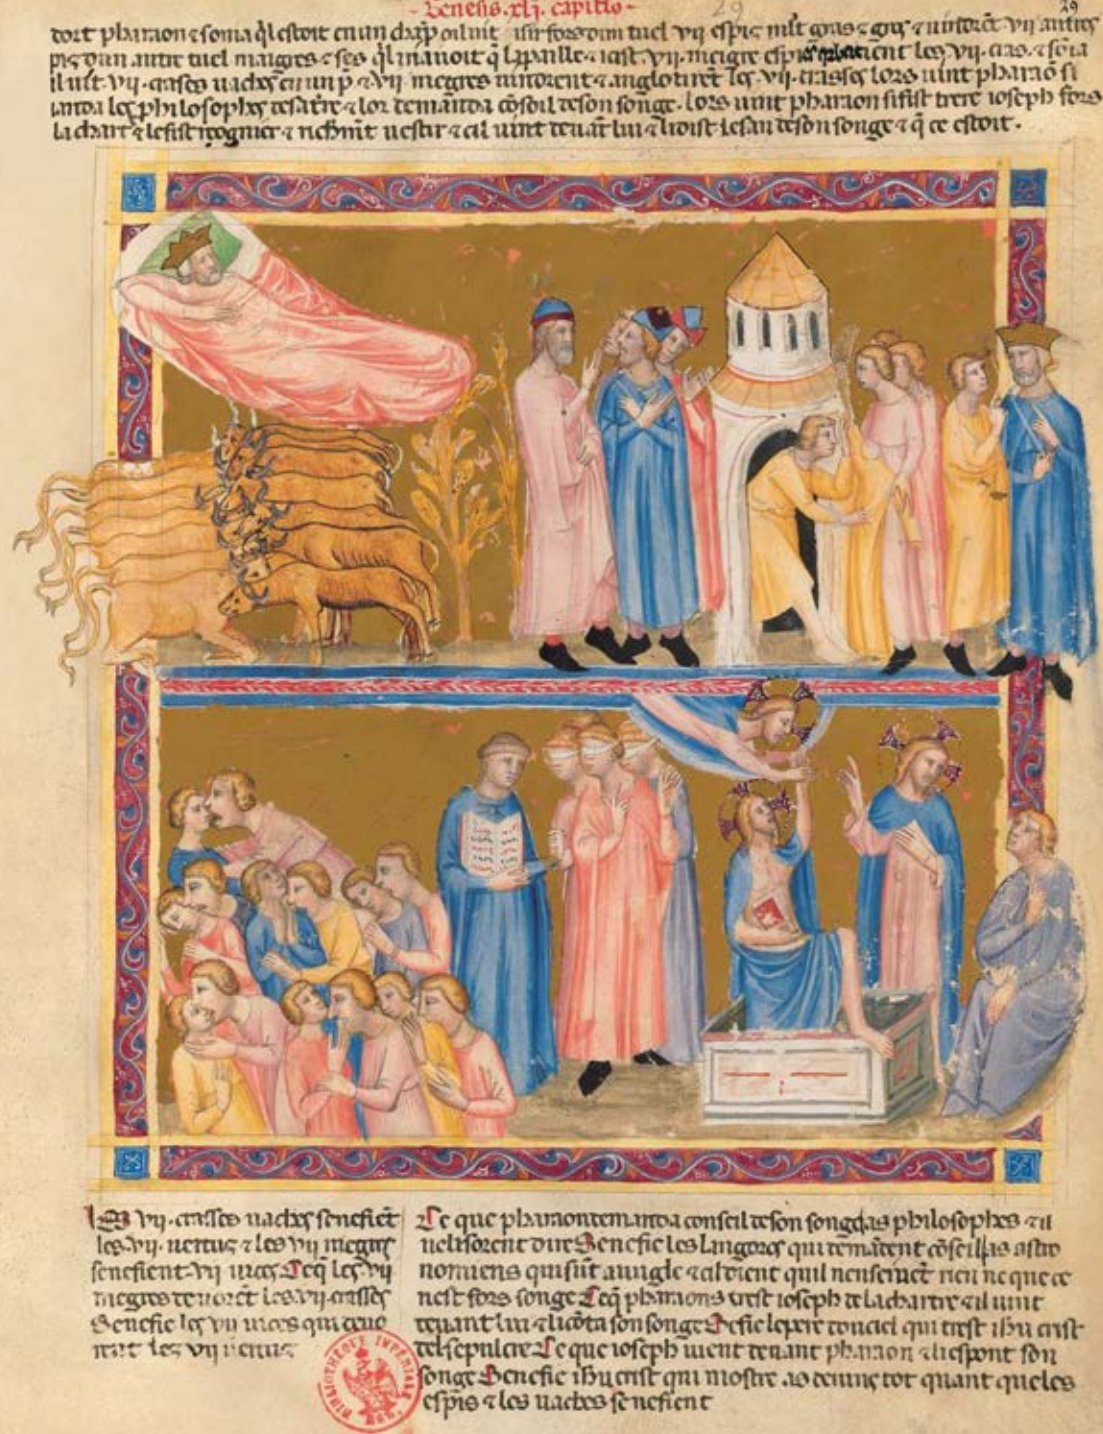 Genesis .xlj. capitlo
29
29
dort pharaon ⁊ sonia q̃l estoit en un
vij espis
pis dun autre tuel maigres ⁊ ses q̃l ni avoit q̃ ⁊ cist .vij. meigre espi les .vij.
il vit .vij. crases vaches en un p̃ ⁊ .vij. megres vindrent ⁊ anglotirẽt les .vij. crasses lors vint pharaõ si
manda les philosophes de sa tr̃e ⁊ lor demanda cõsoil de son songe. Lors vint pharaon si fist trere ioseph fors
la chartr̃ ⁊ le fist ⁊ vestir ⁊ cil vint devãt lui ⁊ li dist le san de son songe ⁊ q̃ ce estoit.
Les vij. crasses vaches senefiẽt
les .vij. vertus ⁊ les vij megres
senefient .vij vices Ce q̃ les vij
megres devorẽt les .vij. crasses
Senefie les vij vices qui devo
rent les vij vertus
Ce que pharaon demanda conseil de son songe as philosophes ⁊ il
ne li sorent dire Senefie les qui demãdent cõseil as astro
nomiens qui sũt avugle ⁊ cil dient quil nen sevẽt rien ne que ce
nest fors songe Ce q̃ pharaons trest ioseph de la chartre ⁊ il vint
devant lui ⁊ li cõta son songe Sefie le pere dou ciel qui trest ihu crist
del sepulcre Ce que ioseph vient devant pharaon ⁊ li espont son
songe Senefie ihu crist qui mostre tot quant que les
espis ⁊ les vaches senefient
BIBLIOTHEQUE IMPERIALE